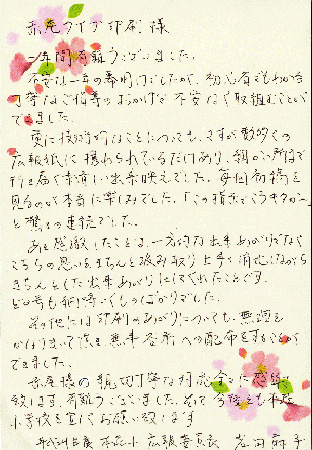 赤尾タイプ印刷 様
一年間有難うございました。
不安な一年の幕明けでしたが、初心者でもわかる
丁寧なご指導のおかげで不安なく取組むことが
できました。
更に技術的なことについても、さすが数多くの
広報紙に携わられているだけあり、細かい所まで
行き届く本当に出来映えでした。毎回初稿を
見るのが本当に楽しみでした。「この指示でこうきたか〜」
と驚きの連続でした。
あと感激したことは、一方的な出来あがりでなく
こちらの思いをきちんと汲み取り上手く消化しながら
きちんとした出来あがりにしてくれたことです。
どの号も
ものばかりでした。
その他には印刷のあがりについても、無理を
きいて頂き無事各所への配布をすることが
できました。
赤尾様の親切丁寧な対応全てに感謝
致します。有難うございました。そして今後とも
小学校を宜しくお願い致します
平成24年度
小 広報委員長